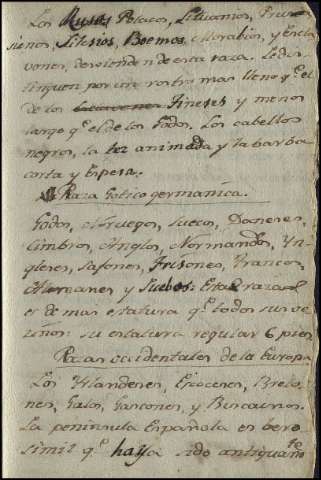 Los Rusos Polacos, Lituanios, Pru
sienos, Silesios, Boemos, Morabios, y Escla
vones, descienden de esta raza. Se dis
tinguen por un rostro mas lleno q.e el
de los Fineses y menos
largo q.e el de los Godos. Los cabellos
negros, la tez animada y la barba
corta y espesa.
Raza Gotico germanica.
Godos, Noruegos, Suecos, Daneses,
Cimbros, Anglos, Normandos, Yn-
gleses, Sajones, Frisones, Francos,
Alemanes y Suebos: Esta raza
es de mas estatura q.e todos sus ve
zinos: su estatura regular 6 pies
Razas occidentales de la Europa
Los Yrlandeses, Escoceses, Breto
nes, Galos, Gascones, y Biscainos.
La peninsula Española es bero
simil q.e haya sido antiguam.te